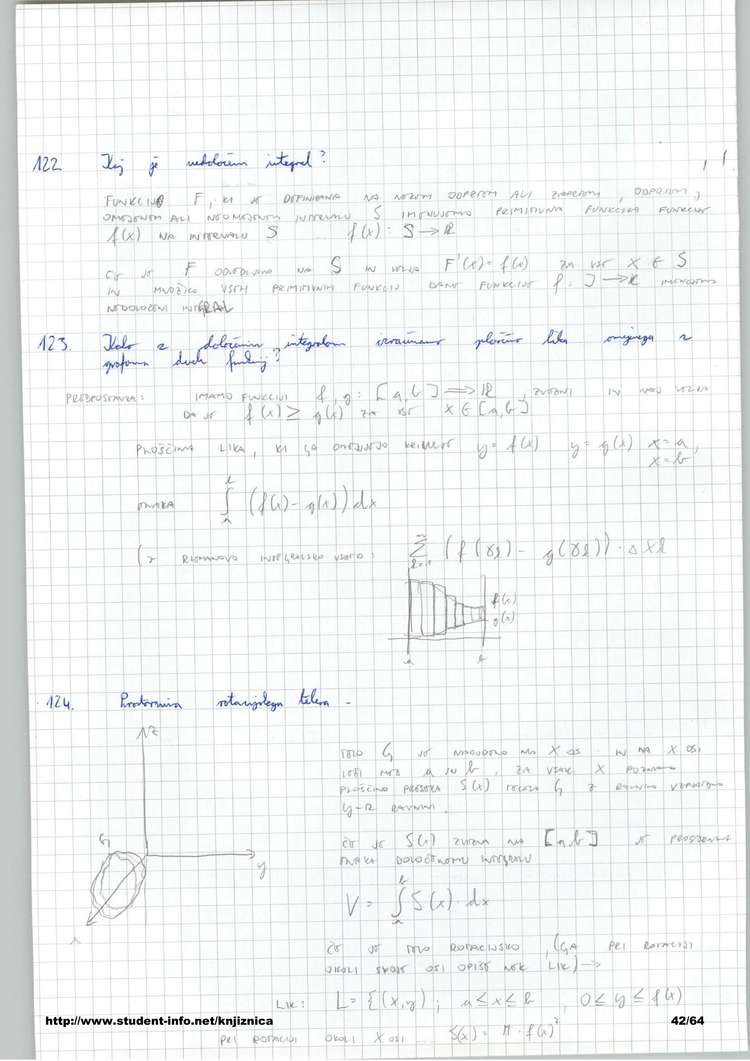 122 Kaj je nedoločen integral?
FUNKCIJO F, KI JE DEFINIRANA NA NEKEM ODPRTEM ALI ZAPRTEM, ODPRTEM,
OMEJENEM ALI NEOMEJENEM INTERVALU S IMENUJEMO PRIMITIVNA FUNKCIJA FUNKCIJE
f(x) NA INTERVALU S f(x): S → R
ČE JE F ODVEDLJIVA NA S IN VELJA F'(x) = f(x) ZA VSE X ∈ S
IN MNOŽICO VSEH PRIMITIVNIH FUNKCIJ DANE FUNKCIJE f: → R IMENUJEMO
NEDOLOČENI INTEGRAL
123. Kako z določenim integralom izračunamo ploščino lika omejenega z
grafoma dveh funkcij?
PREDPOSTAVKA: IMAMO FUNKCIJI f, g: [a,b] ⟹ R, ZVEZNI IN NAJ VELJA
DA JE f(x) ≥ g(x) ZA VSE X ∈ [a,b]
PLOŠČINA LIKA, KI GA OMEJUJEJO KRIVULJE y = f(x) y = g(x) x = a,
x = b
ENAKA ∫ₐᵇ (f(x) - g(x)) dx
(Z RIEMANNOVO INTEGRALSKO VSOTO: Σ (f(γk) - g(γk)) · Δxk
f(x)
g(x)
a b
124. Prostornina rotacijskega telesa -
z
TELO G JE NA X OS IN NA X OSI
LEŽI MED a IN b, ZA VSAK X POZNAMO
PLOŠČINO PRESEKA S(x) TELESA G Z RAVNINO VZPOREDNO
y-z RAVNINI.
G
y
x
ČE JE S(x) ZVEZNA NA [a,b] JE PROSTORNINA
ENAKA DOLOČENEMU INTEGRALU
V = ∫ₐᵇ S(x) · dx
ČE JE TELO ROTACIJSKO, (GA PRI ROTACIJI
OKOLI SVOJE OSI OPIŠE NEK LIK) →
LIK: L = {(x,y); a ≤ x ≤ b, 0 ≤ y ≤ f(x)
http://www.student-info.net/knjiznica 42/64
PRI ROTACIJI OKOLI X OSI S(x) = π · f(x)²